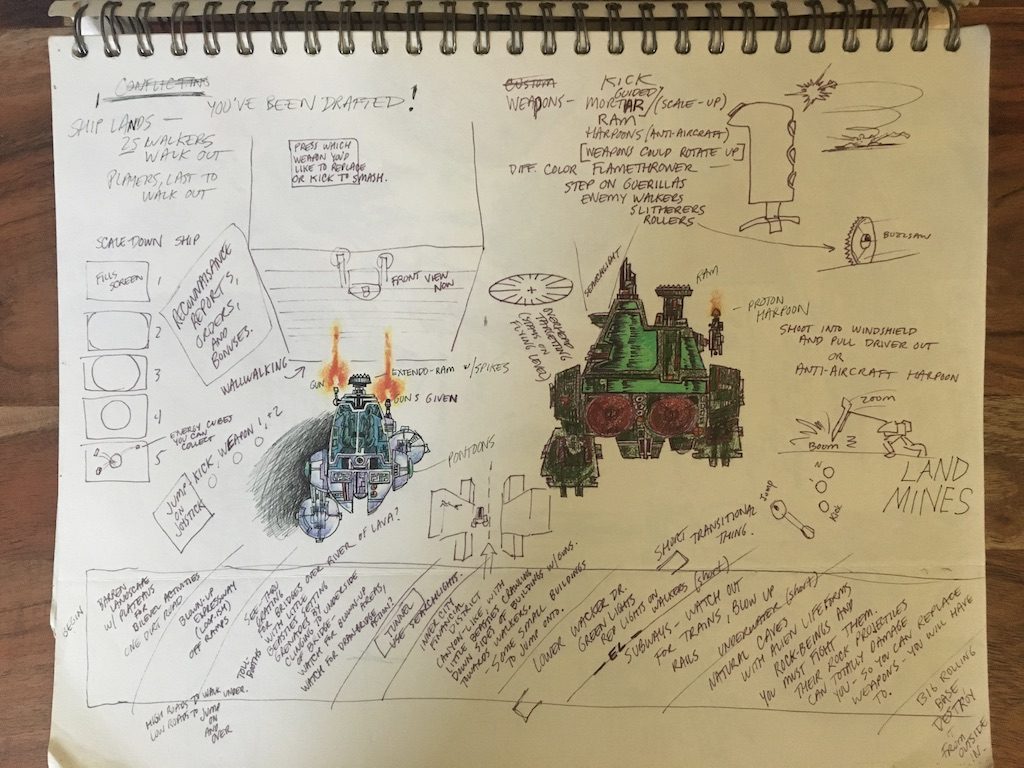 CONFLICTING
YOU'VE BEEN DRAFTED!
SHIP LANDS —
25 WALKERS
WALK OUT
PLAYERS, LAST TO
WALK OUT
PRESS WHICH
WEAPON YOU'D
LIKE TO REPLACE
OR KICK TO SMASH.
CUSTOM
WEAPONS —
KICK
GUIDED
MORTAR/(SCALE-UP)
RAM
HARPOONS (ANTI-AIRCRAFT)
WEAPONS COULD ROTATE UP
DIFF. COLOR FLAMETHROWER —
STEP ON GUERILLAS
ENEMY WALKERS
SLITHERERS
ROLLERS
BUZZSAW
SCALE-DOWN SHIP
FILLS
SCREEN
1
2
3
4
5
RECONNAISANCE
REPORTS,
ORDERS,
AND
BONUSES.
FRONT VIEW
NOW
WALLWALKING
GUN
EXTENDO-RAM W/SPIKES
GUNS GIVEN
PONTOONS
ENERGY CUBES
YOU CAN
COLLECT
JUMP
ON
JOYSTICK
KICK, WEAPON 1, + 2
OVERHEAD
TARGETING
(STAYS ON
FLYING LEVEL)
SEARCHLIGHT
RAM
PROTON
HARPOON
SHOOT INTO WINDSHIELD
AND PULL DRIVER OUT
OR
ANTI-AIRCRAFT HARPOON
ZOOM
BOOM
LAND
MINES
JUMP
KICK
SHORT TRANSITIONAL
THING.
BEGIN
BARREN
LANDSCAPE
W/ PLATEAUS
FOR
BI-LEVEL ACTIVITIES
DIRT ROAD
BLOWN-UP
EXPRESSWAY
OFF RAMPS
HIGH ROADS TO WALK UNDER.
LOW ROADS TO JUMP
ON
AND
OVER
TOLL-
BOOTHS
BRIDGES OVER RIVER OF LAVA?
WITH LITTLE
BEASTIES
GRENADES BY
CLIMBING TO
UNDERSIDE
OF BRIDGE
WATCH FOR BLOWN-UP
AREAS,
WATCH FOR DRAWBRIDGE AREAS
TUNNEL
USE SEARCHLIGHTS.
INNER CITY
FINANCIAL
DISTRICT
CANYON-LIKE WITH
LITTLE BEASTIES CRAWLING
DOWN SIDES OF BUILDINGS W/GUNS.
TOWARDS WALKERS.
— SOME SMALL BUILDINGS
TO JUMP ONTO.
LOWER WACKER DR.
GREEN LIGHTS
RED LIGHTS ON
WALKERS (SHORT)
— EL —
SUBWAYS — WATCH OUT
FOR TRAINS, BLOW UP
RAILS
UNDERWATER (SHORT)
NATURAL CAVES
WITH ALIEN LIFEFORMS
ROCK-BEINGS AND
YOU MUST FIGHT THEM.
THEIR ROCK PROJECTILES
CAN TOTALLY DAMAGE
YOU - SO YOU CAN REPLACE
WEAPONS - YOU WILL HAVE
TO.
BIG ROLLING
BASE
DESTROY
IT
FROM
OUTSIDE
IN.